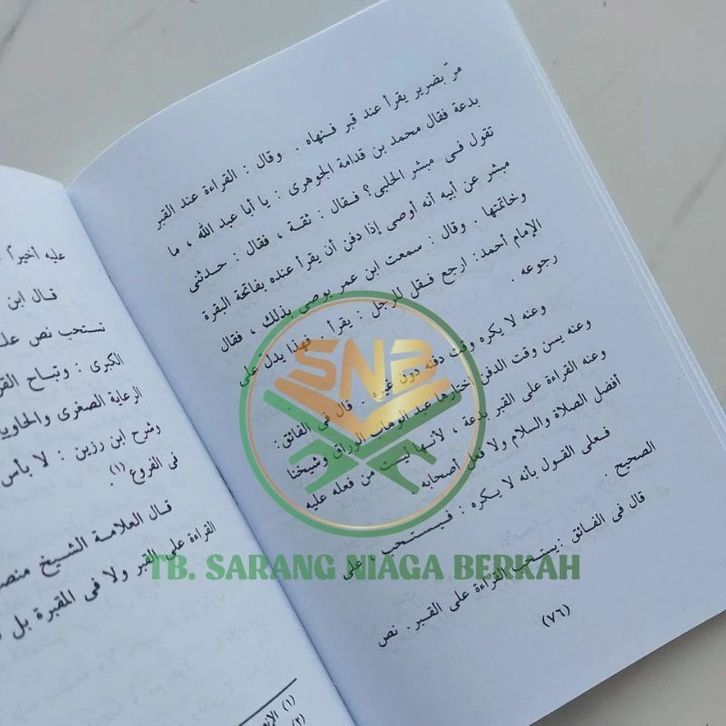 مر بضرير يقرأ عند قبر فنهاه . وقال : القراءة عند القبر
بدعة فقال محمد بن قدامة الجوهرى : يا أبا عبد الله ، ما
تقول فى مبشر الحلبى؟ فقال : ثقة ، فقال : حدثنى
مبشر عن أبيه أنه أوصى إذا دفن أن يقرأ عنده بفاتحة البقرة
وخاتمتها . وقال : سمعت ابن عمر يوصى بذلك ، فقال
الإمام أحمد: ارجع فقل للرجل : يقرأ . فهذا يدل على
رجوعه .
وعنه لا يكره وقت دفنه دون غيره . قال فى الفائق :
وعنه يسن وقت الدفن اختارها عبد الوهاب الوراق وشيخنا
وعنه القراءة على القبر بدعة ، لأنها ليست من فعله عليه
أفضل الصلاة والسلام ولا فعل أصحابه .
فعلى القول بأنه لا يكره : فيستحب على
الصحيح .
قال فى الفائق :يستحب القراءة على القبر . نص
(٧٦)
عليه أخيراً
قال ابن
تستحب نص على
الكبرى : وتباح القر
الرعاية الصغرى والحاويي
وشرح ابن رزين : لا بأس
فى الفروع (١).
قال العلامة الشيخ منص
القراءة على القبر ولا فى المقبرة بل
(١) الإنص
(٢)
SNB
TB. SARANG NIAGA BERKAH